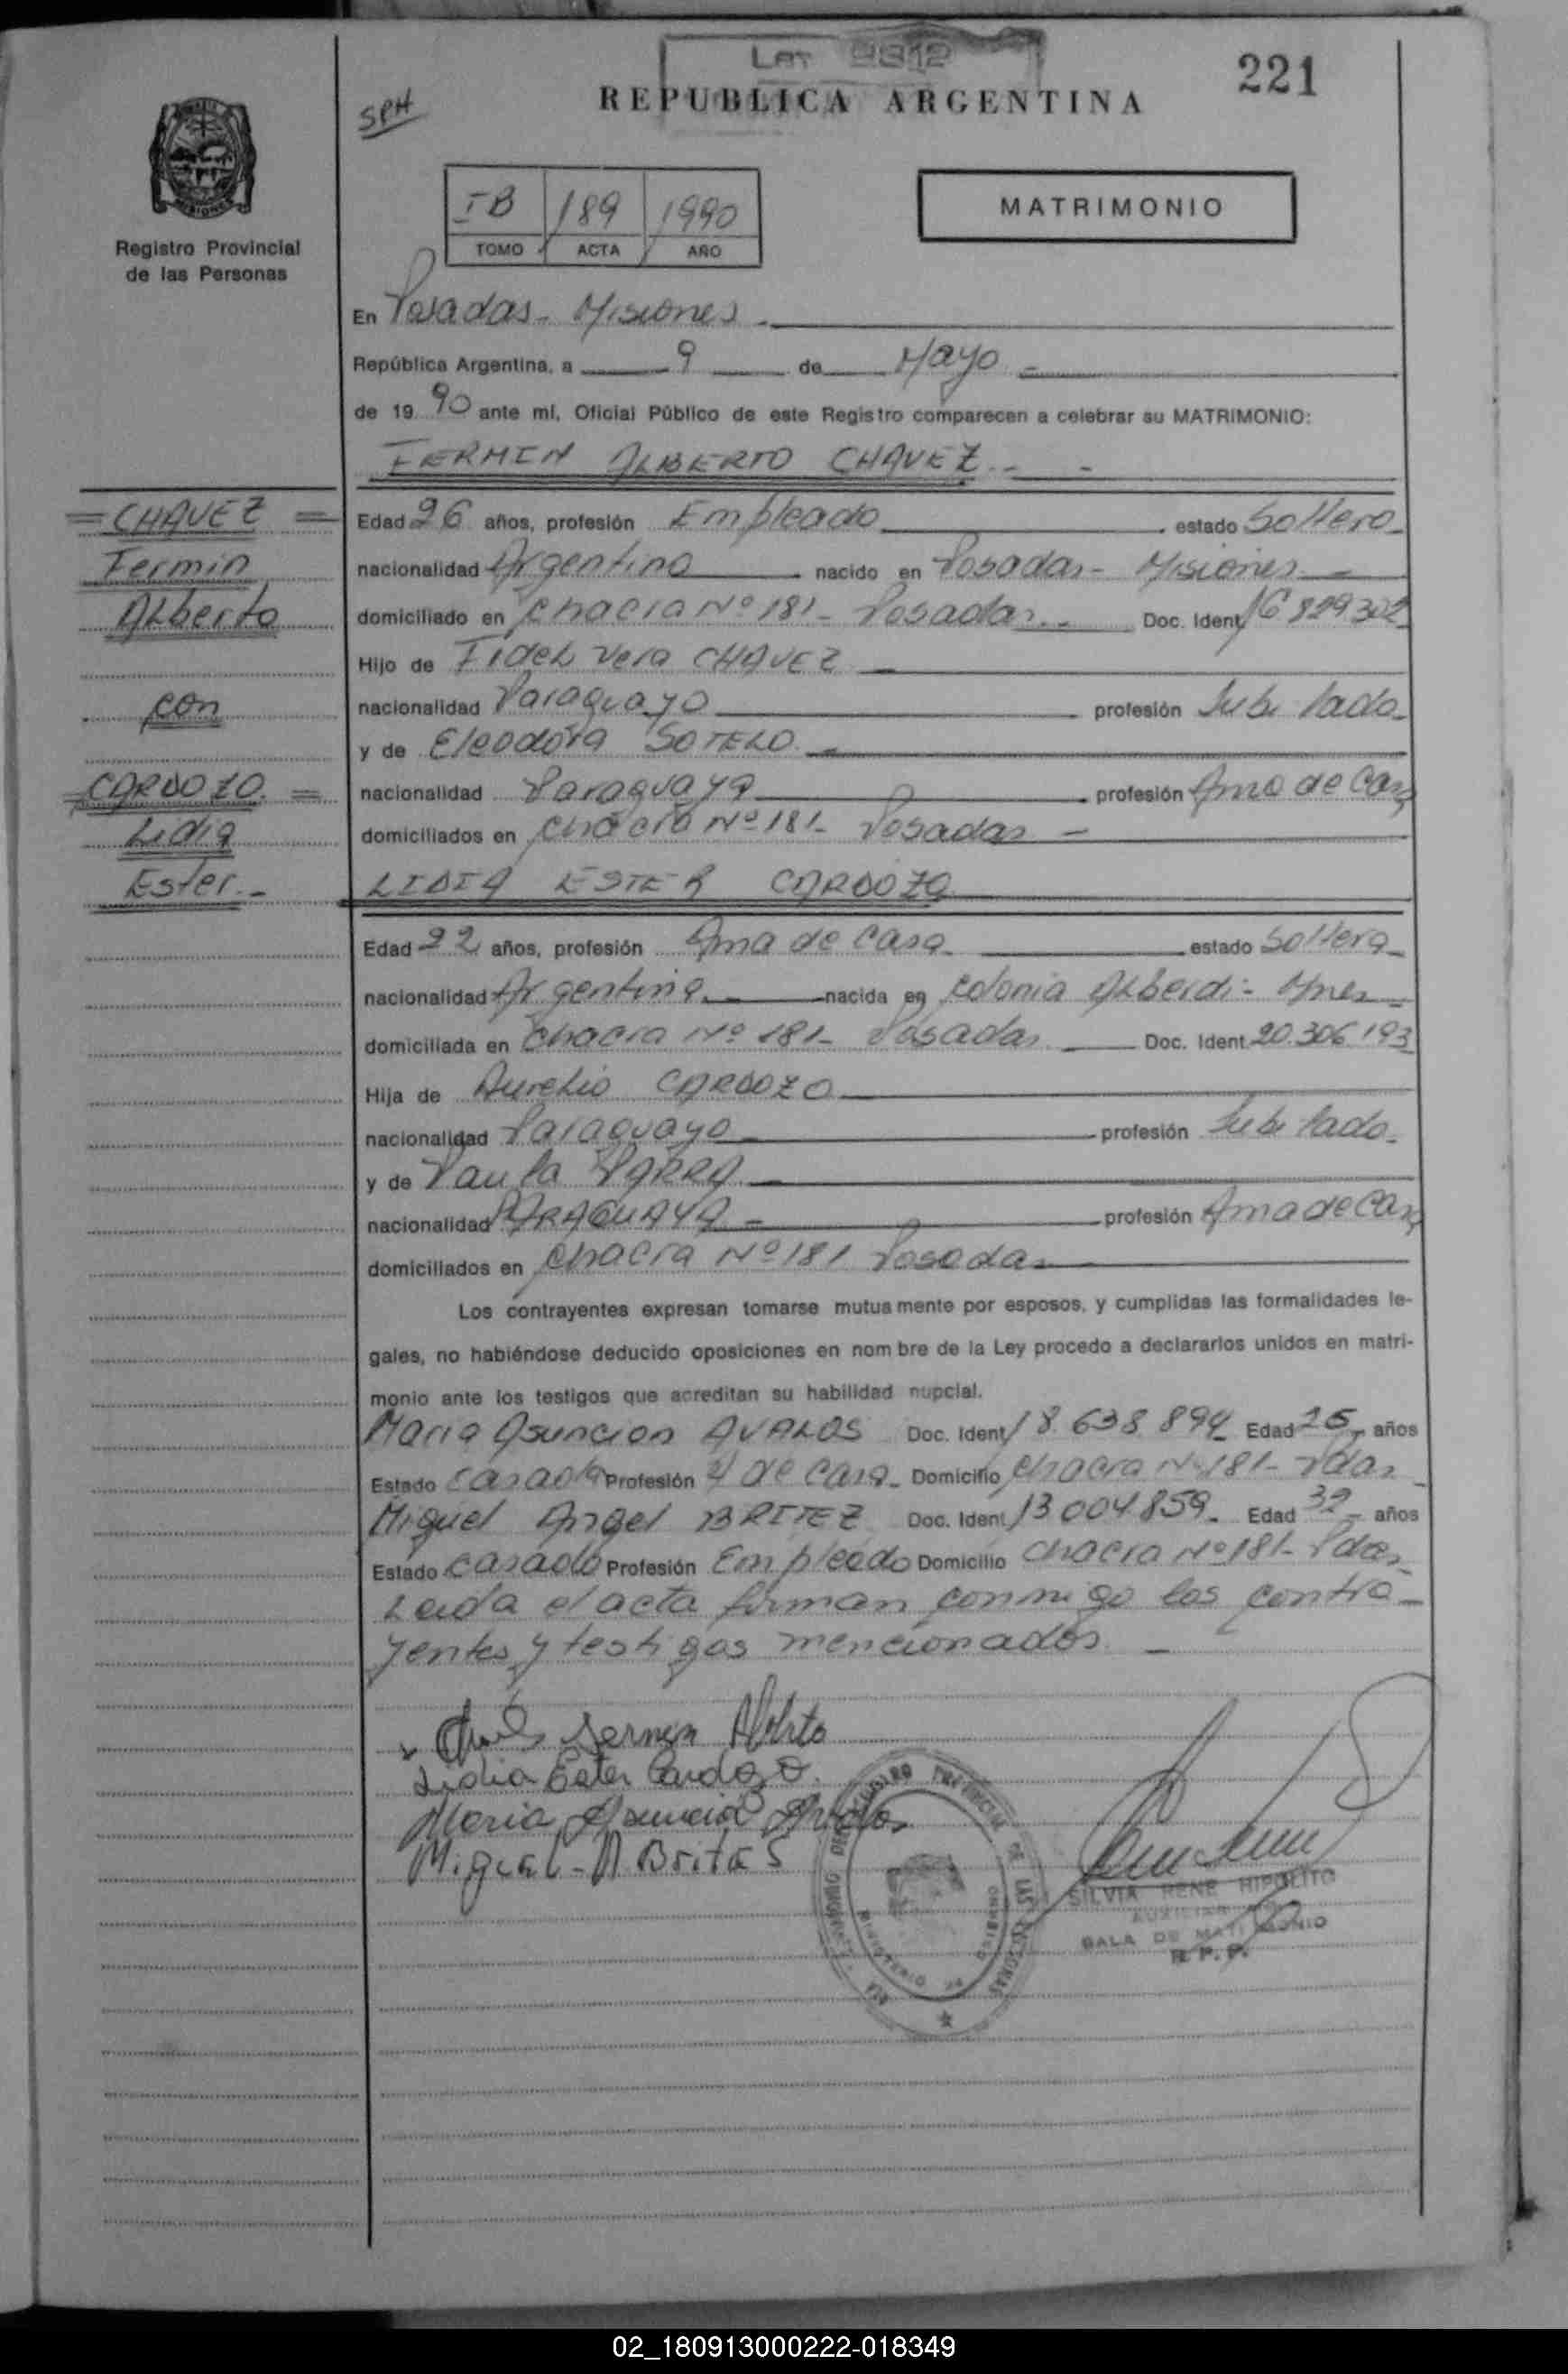 Ley 9312
221
SPH
REPUBLICA ARGENTINA
Registro Provincial
de las Personas
IB 189 1990
TOMO ACTA AÑO
MATRIMONIO
En Posadas - Misiones
República Argentina, a 9 de Mayo
de 1990 ante mí, Oficial Público de este Registro comparecen a celebrar su MATRIMONIO:
FERMIN ALBERTO CHAVEZ
= CHAVEZ =
Fermin
Alberto
con
CARDOZO. =
Lidia
Ester.-
Edad 26 años, profesión Empleado estado Soltero
nacionalidad Argentino nacido en Posadas - Misiones
domiciliado en Chacra Nº 181 - Posadas Doc. Ident. 16 829.302
Hijo de Fidel Vera CHAVEZ
nacionalidad Paraguayo profesión Jubilado
y de Eleodora SOTELO
nacionalidad Paraguaya profesión Ama de Casa
domiciliados en Chacra Nº 181 - Posadas
LIDIA ESTER CARDOZO
Edad 22 años, profesión Ama de Casa estado Soltera
nacionalidad Argentina nacida en Colonia Alberdi - Mnes
domiciliada en Chacra Nº 181 - Posadas Doc. Ident. 20.306.193
Hija de Aurelio CARDOZO
nacionalidad Paraguayo profesión Jubilado
y de Paula PARRA
nacionalidad PARAGUAYA profesión Ama de Casa
domiciliados en Chacra Nº 181 Posadas
Los contrayentes expresan tomarse mutuamente por esposos, y cumplidas las formalidades le-
gales, no habiéndose deducido oposiciones en nombre de la Ley procedo a declararlos unidos en matri-
monio ante los testigos que acreditan su habilidad nupcial.
Maria Asuncion AVALOS Doc. Ident. 18.638.894 Edad 25 años
Estado casada Profesión A de casa Domicilio Chacra Nº 181 - Pdas
Miguel Angel BRITEZ Doc. Ident. 13 004.859 Edad 32 años
Estado casado Profesión Empleado Domicilio Chacra Nº 181 - Pdas
Leida el acta firman conmigo los contra-
yentes y testigos mencionados
Fermin Alberto
Lidia Ester Cardozo
Maria Asuncion Avalos
Miguel - A Brites
REGISTRO PROVINCIAL DE LAS PERSONAS
MINISTERIO DE GOBIERNO
SILVIA RENE HIPOLITO
AUXILIAR
SALA DE MATRIMONIO
R. P. P.
02_180913000222-018349